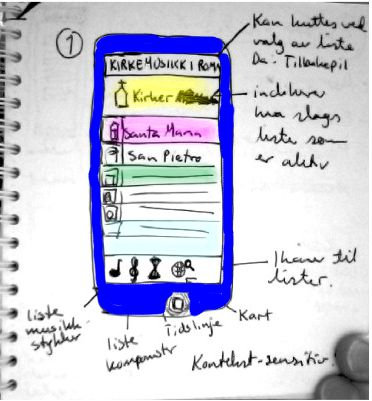 1
KIRKEMUSIKK I ROMA
Kirker
Santa Maria
San Pietro
Kan byttes ved
valg av liste
Da: Tilbakepil
indikerer
hva slags
liste som
er aktiv
Ikoner til
lister.
Kart
Tidslinje
liste
komponister
liste
musikk-
stykker
Kontekst-sensitiv!